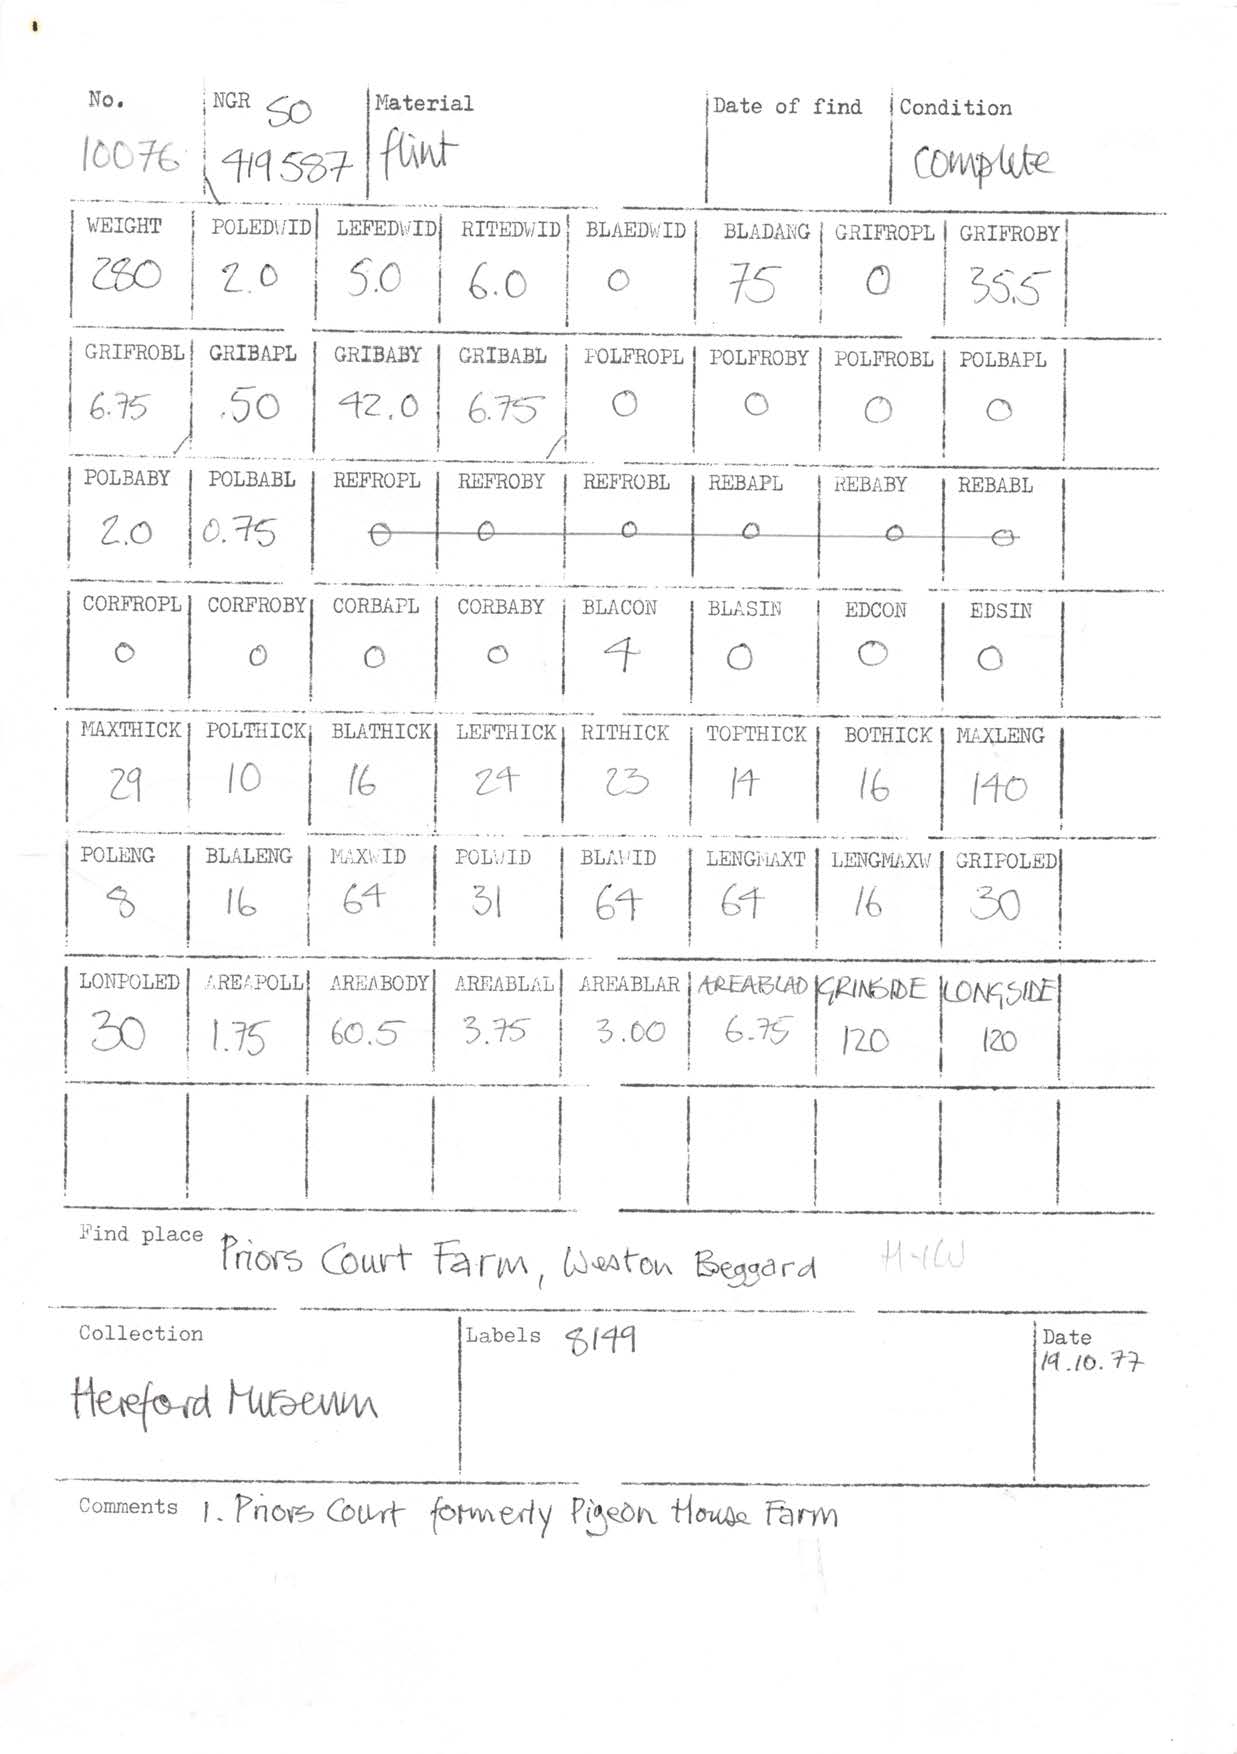 No. NGR SO Material Date of find Condition
10076 419587 flint complete
WEIGHT POLEDWID LEFEDWID RITEDWID BLAEDWID BLADANG GRIFROPL GRIFROBY
280 2.0 5.0 6.0 0 75 0 35.5
GRIFROBL GRIBAPL GRIBABY GRIBABL POLFROPL POLFROBY POLFROBL POLBAPL
6.75 .50 42.0 6.75 0 0 0 0
POLBABY POLBABL REFROPL REFROBY REFROBL REBAPL REBABY REBABL
2.0 0.75 0 0 0 0 0 0
CORFROPL CORFROBY CORBAPL CORBABY BLACON BLASIN EDCON EDSIN
0 0 0 0 4 0 0 0
MAXTHICK POLTHICK BLATHICK LEFTHICK RITHICK TOPTHICK BOTHICK MAXLENG
29 10 16 24 23 14 16 140
POLENG BLALENG MAXWID POLWID BLAWID LENGMAXT LENGMAXW GRIPOLED
8 16 64 31 64 64 16 30
LONPOLED AREAPOLL AREABODY AREABLAL AREABLAR AREABLAD GRINSIDE LONGSIDE
30 1.75 60.5 3.75 3.00 6.75 120 120
Find place Priors Court Farm, Weston Beggard H+W
Collection Labels 8149 Date
19.10.77
Hereford Museum
Comments 1. Priors Court formerly Pigeon House Farm